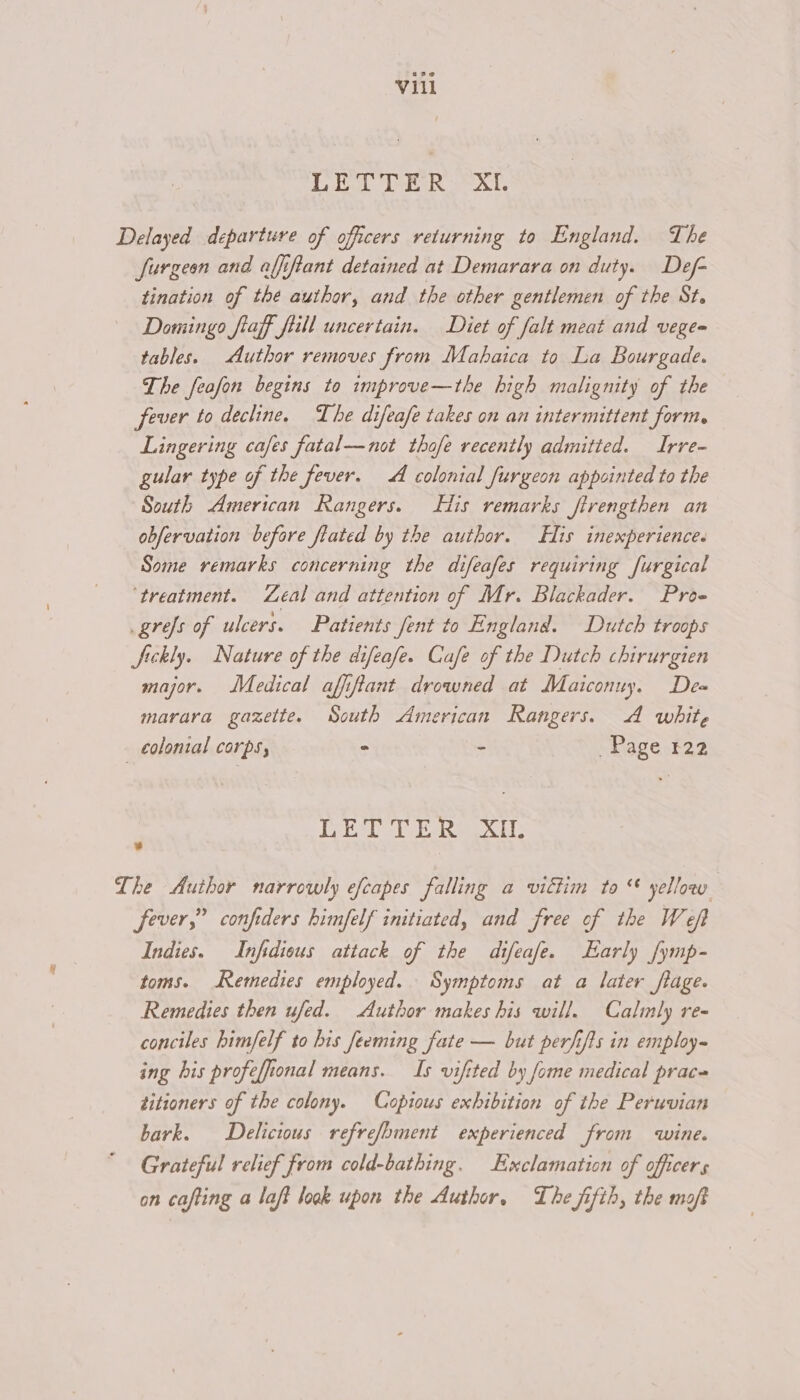 viii
LETTER XI.
Delayed departure of officers returning to England. The
ſurgeon and aſſiſtant detained at Demarara on duty. Deſ-
tination of the author, and the other gentlemen of the St.
Domingo ſtaff ſtill uncertain. Diet of ſalt meat and vege-
tables. Author removes from Mahaica to La Bourgade.
The ſeaſon begins to improve—the high malignity of the
fever to decline. The diſeaſe takes on an intermittent form.
Lingering caſes fatal—not thoſe recently admitted. Irre-
gular type of the fever. A colonial ſurgeon appointed to the
South American Rangers. His remarks ſtrengthen an
obſervation before ſtated by the author. His inexperience.
Some remarks concerning the diſeaſes requiring ſurgical
treatment. Zeal and attention of Mr. Blackader. Pro-
greſs of ulcers. Patients ſent to England. Dutch troops
ſickly. Nature of the diſeaſe. Caſe of the Dutch chirurgien
major. Medical aſſiſtant drowned at Maiconuy. De-
marara gazette. South American Rangers. A white
colonial corps, - - Page 122
LETTER XII.
The Author narrowly eſcapes falling a victim to “ yellow
fever,” conſiders himſelf initiated, and free of the Weſt
Indies. Inſidious attack of the diſeaſe. Early ſymp-
toms. Remedies employed. Symptoms at a later ſtage.
Remedies then uſed. Author makes his will. Calmly re-
conciles himſelf to his ſeeming fate — but perſiſts in employ-
ing his profeſſional means. Is viſited by ſome medical prac-
titioners of the colony. Copious exhibition of the Peruvian
bark. Delicious refreſhment experienced from wine.
Grateful relief from cold-bathing. Exclamation of officers
on caſting a laſt look upon the Author. The fifth, the moſt